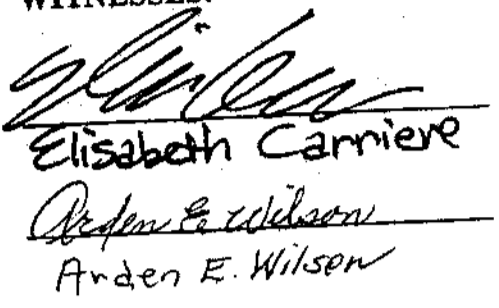 WITNESSES:
Elisabeth Carriere
Arden E. Wilson
Arden E. Wilson